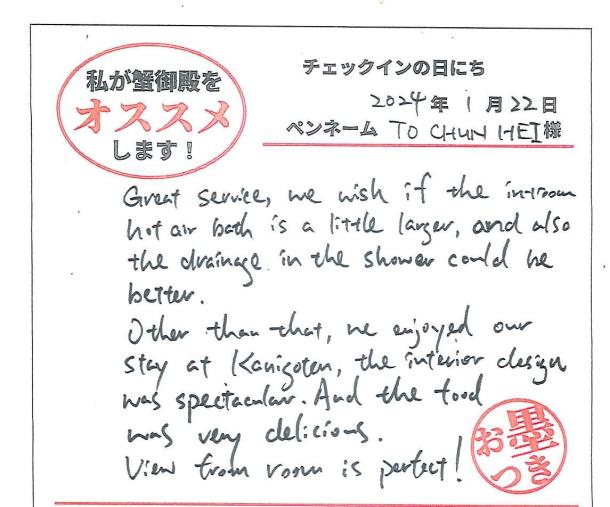 私が蟹御殿を
オススメ
します！
チェックインの日にち
2024年 1月22日
ペンネーム TO CHUN HEI様
Great service, we wish if the in-room
hot air bath is a little larger, and also
the drainage in the shower could be
better.
Other than that, we enjoyed our
stay at Kanigoten, the interior design
was spectacular. And the food
was very delicious.
View from room is perfect!
お墨
つき